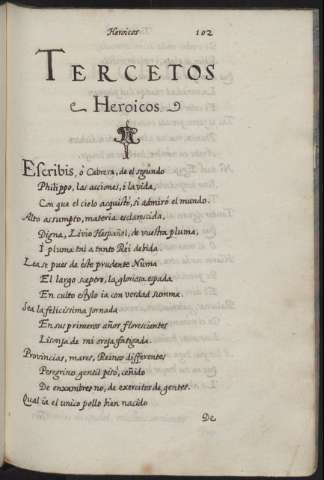 Heroicos 102
TERCETOS
Heroicos
Escribis, ó Cabrera, de el segundo
Philippo, las acciones, i la vida,
Con que el cielo acquistó, si admiró el mundo.
Alto assumpto, materia esclarecida,
Digna, Livio Hespañol, de vuestra pluma,
I pluma tal a tanto Rei debida.
Lease pues de este prudente Numa
El largo sceptro, la gloriosa espada
En culto estylo ia con verdad summa.
Sea la felicissima jornada
En sus primeros años florescientes
Lisonja de mi oreja fatigada.
Provincias, mares, Reinos differentes
Peregrino gentil pisó, ceñido
De enxambres no, de exercitos de gentes.
Qual ia el unico pollo bien nacido
De